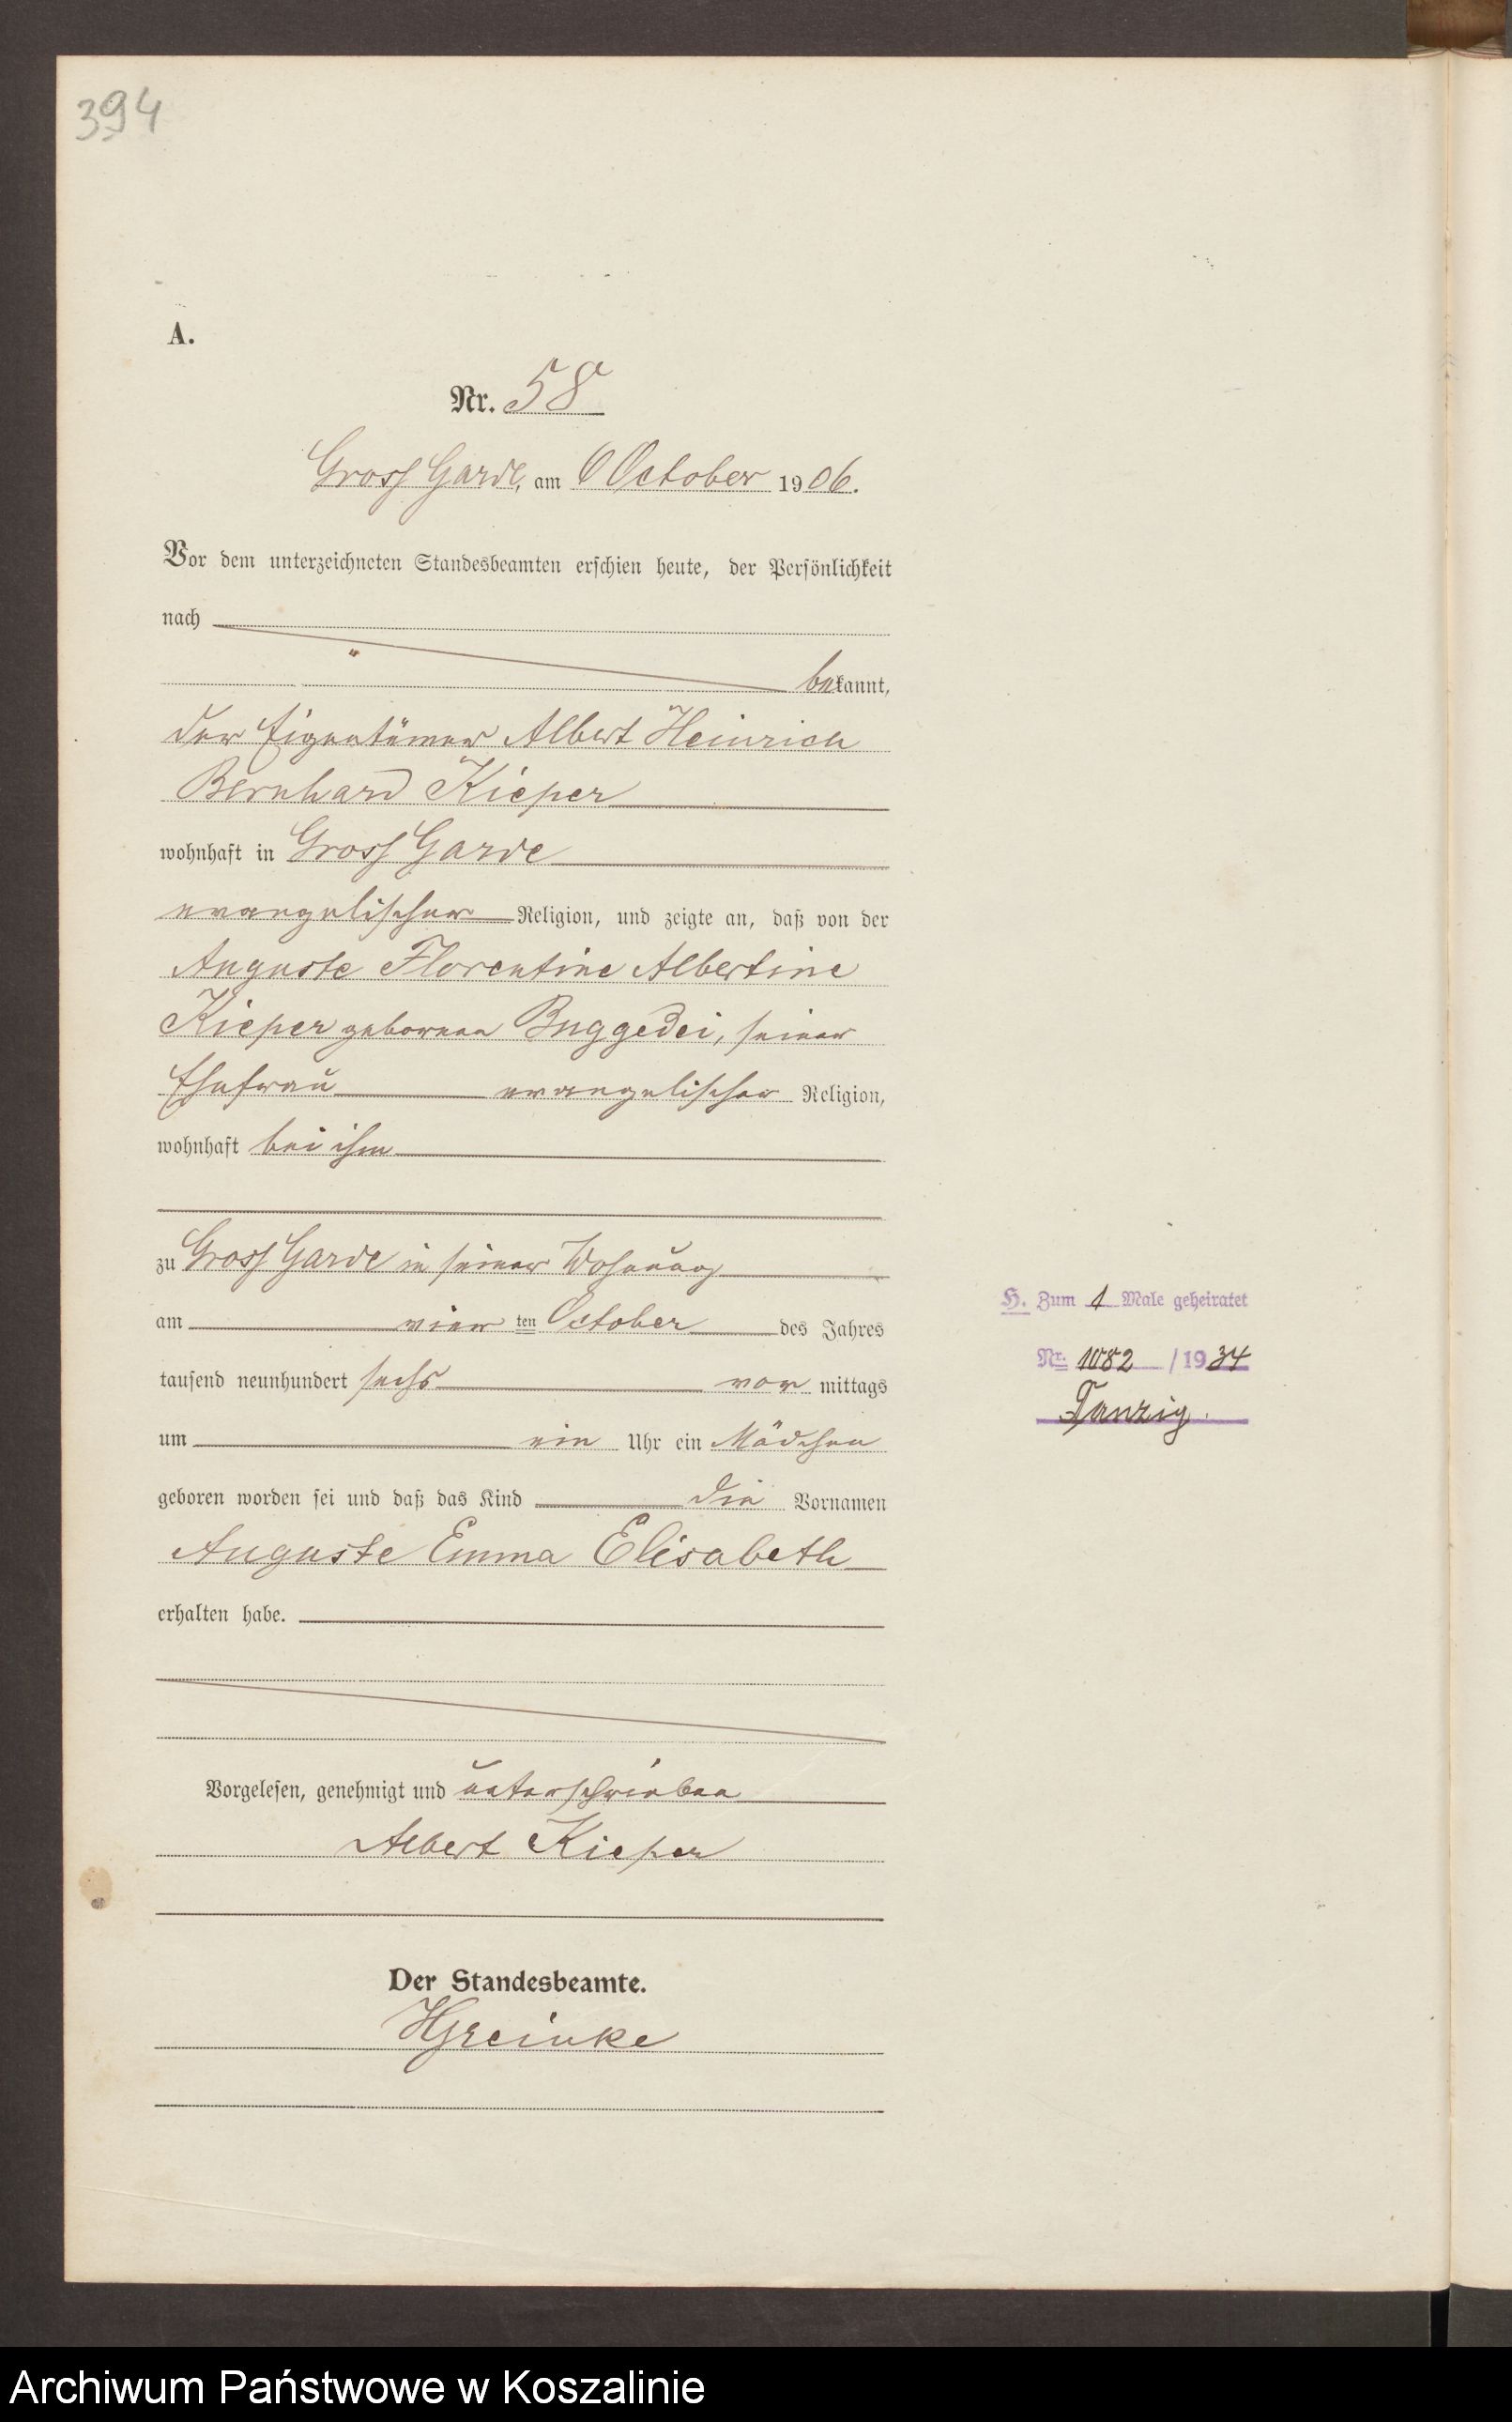 394
A.
Nr. 58
Gross Garde, am 6 October 1906.
Vor dem unterzeichneten Standesbeamten erschien heute, der Persönlichkeit
nach
bekannt,
der Eigentümer Albert Heinrich
Bernhard Kieper
wohnhaft in Gross Garde
evangelischer Religion, und zeigte an, daß von der
Auguste Florentine Albertine
Kieper geborenen Buggedei, seiner
Ehefrau evangelischer Religion,
wohnhaft bei ihm
zu Gross Garde in seiner Wohnung
am vier ten October des Jahres
tausend neunhundert sechs vor mittags
um ein Uhr ein Mädchen
geboren worden sei und daß das Kind die Vornamen
Auguste Emma Elisabeth
erhalten habe.
Vorgelesen, genehmigt und unterschrieben
Albert Kieper
Der Standesbeamte.
H. Zum 1 Male geheiratet
Nr. 1082 / 1934
Danzig.
Archiwum Państwowe w Koszalinie